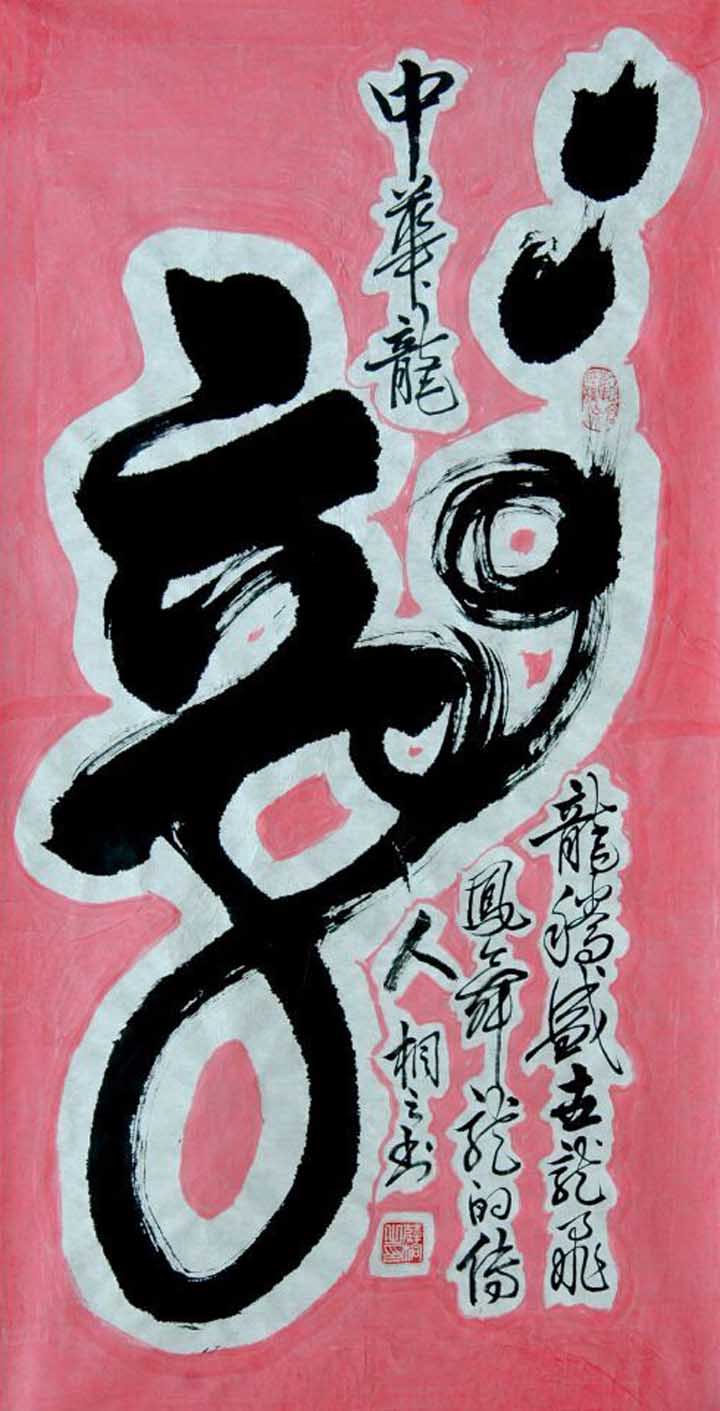 龍
中華龍
龍騰盛世龍飛
鳳舞龍的傳
人 相之书